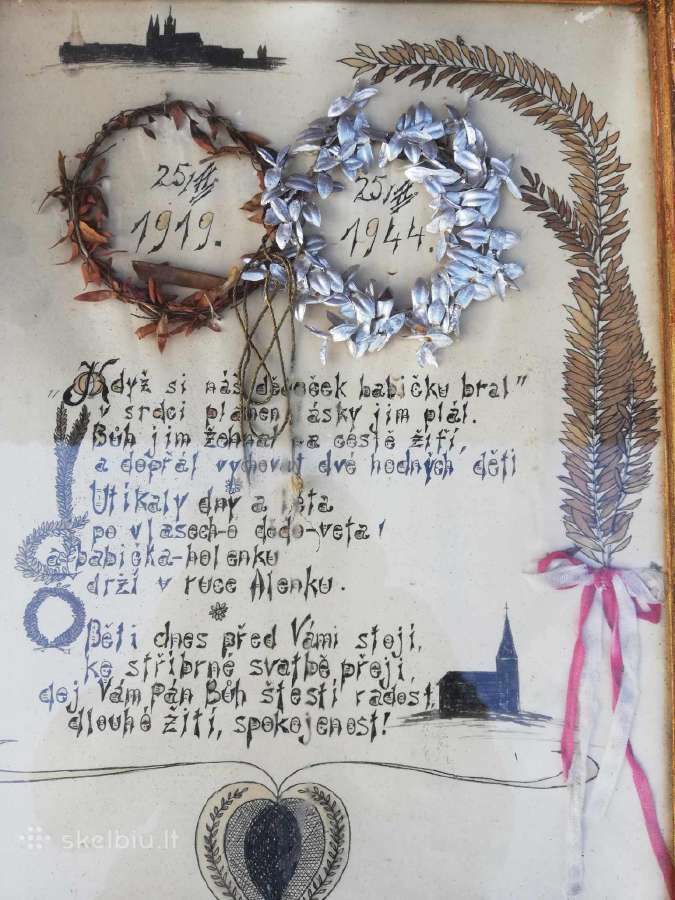 25/
25/
1919.
1944.
"Když si náš dědeček babičku bral"
v srdci plamen lásky jim plál.
Bůh jim žehnal na cestě žití
a dopřál vychovat dvě hodných děti
Utíkaly dny a léta
po vlasech-o dědo-veta!
a babička-holenku
drží v ruce Alenku.
Děti dnes před Vámi stojí,
ke stříbrné svatbě přejí,
dej Vám Pán Bůh štěstí radost,
dlouhé žití, spokojenost!
skelbiu.lt